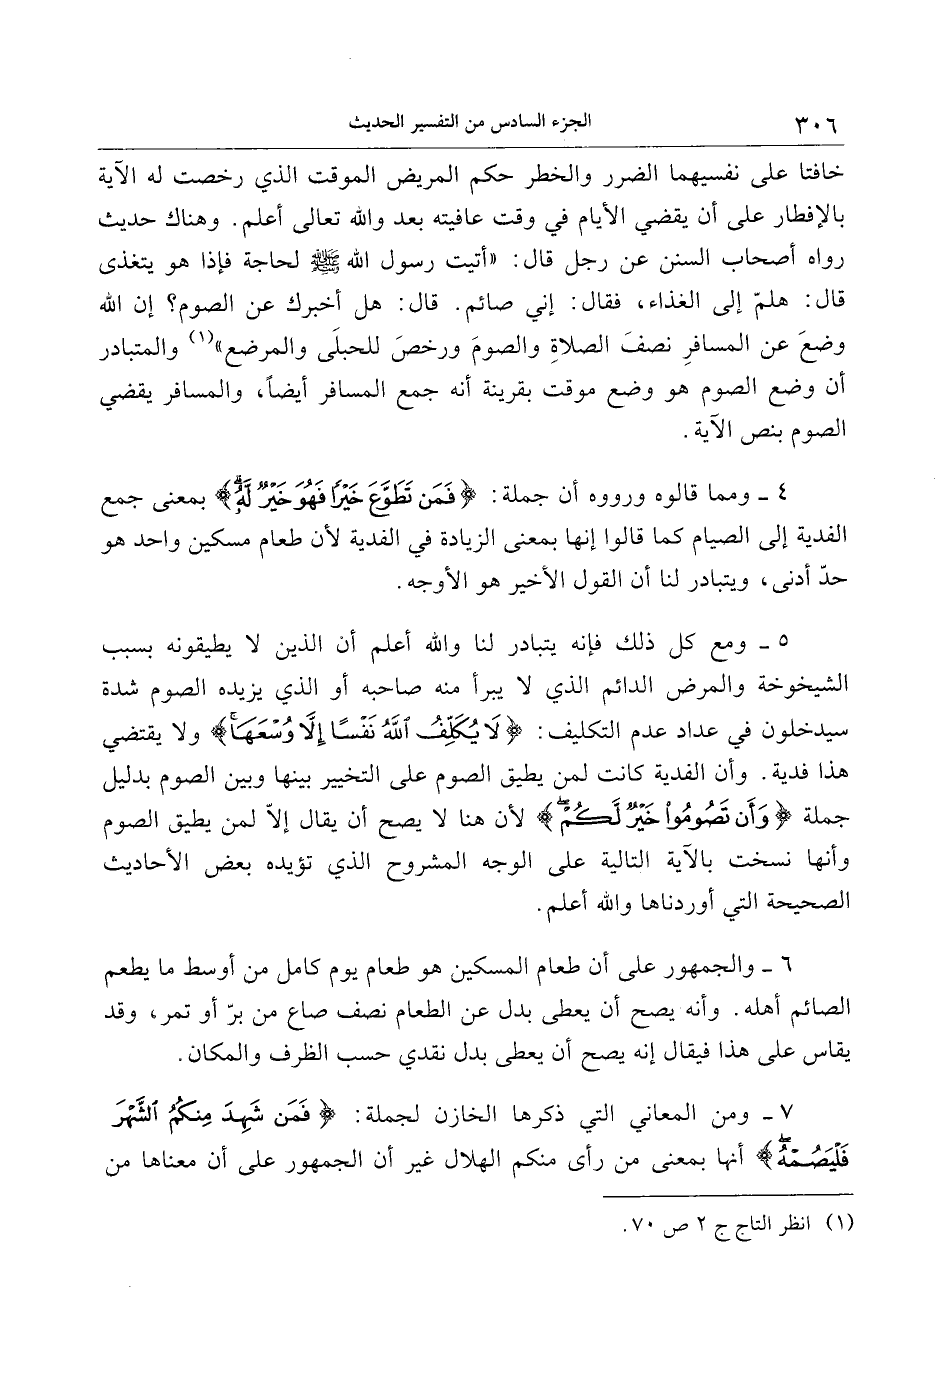 ٣٠٦ الجزء السادس من التفسير الحديث
خافتا على نفسيهما الضرر والخطر حكم المريض الموقت الذي رخصت له الآية
بالإفطار على أن يقضي الأيام في وقت عافيته بعد والله تعالى أعلم. وهناك حديث
رواه أصحاب السنن عن رجل قال: «أتيت رسول الله ﷺ لحاجة فإذا هو يتغذى
قال: هلمّ إلى الغذاء، فقال: إني صائم. قال: هل أخبرك عن الصوم؟ إن الله
وضعَ عن المسافرِ نصفَ الصلاةِ والصومَ ورخصَ للحبلَى والمرضع»(١) والمتبادر
أن وضع الصوم هو وضع موقت بقرينة أنه جمع المسافر أيضاً، والمسافر يقضي
الصوم بنص الآية.
٤ ـ ومما قالوه ورووه أن جملة: ﴿فَمَن تَطَوَّعَ خَيْرًا فَهُوَ خَيْرٌ لَّهُۥۚ﴾ بمعنى جمع
الفدية إلى الصيام كما قالوا إنها بمعنى الزيادة في الفدية لأن طعام مسكين واحد هو
حدّ أدنى، ويتبادر لنا أن القول الأخير هو الأوجه.
٥ ـ ومع كل ذلك فإنه يتبادر لنا والله أعلم أن الذين لا يطيقونه بسبب
الشيخوخة والمرض الدائم الذي لا يبرأ منه صاحبه أو الذي يزيده الصوم شدة
سيدخلون في عداد عدم التكليف: ﴿لَا يُكَلِّفُ ٱللَّهُ نَفْسًا إِلَّا وُسْعَهَاۚ﴾ ولا يقتضي
هذا فدية. وأن الفدية كانت لمن يطيق الصوم على التخيير بينها وبين الصوم بدليل
جملة ﴿وَأَن تَصُومُواْ خَيْرٌ لَّكُمْۖ﴾ لأن هنا لا يصح أن يقال إلاّ لمن يطيق الصوم
وأنها نسخت بالآية التالية على الوجه المشروح الذي تؤيده بعض الأحاديث
الصحيحة التي أوردناها والله أعلم.
٦ ـ والجمهور على أن طعام المسكين هو طعام يوم كامل من أوسط ما يطعم
الصائم أهله. وأنه يصح أن يعطى بدل عن الطعام نصف صاع من برّ أو تمر، وقد
يقاس على هذا فيقال إنه يصح أن يعطى بدل نقدي حسب الظرف والمكان.
٧ ـ ومن المعاني التي ذكرها الخازن لجملة: ﴿فَمَن شَهِدَ مِنكُمُ ٱلشَّهْرَ
فَلْيَصُمْهُۖ﴾ أنها بمعنى من رأى منكم الهلال غير أن الجمهور على أن معناها من
(١) انظر التاج ج ٢ ص ٧٠.